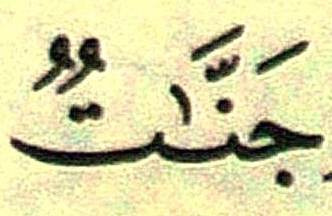 جَنَّٰتٌ